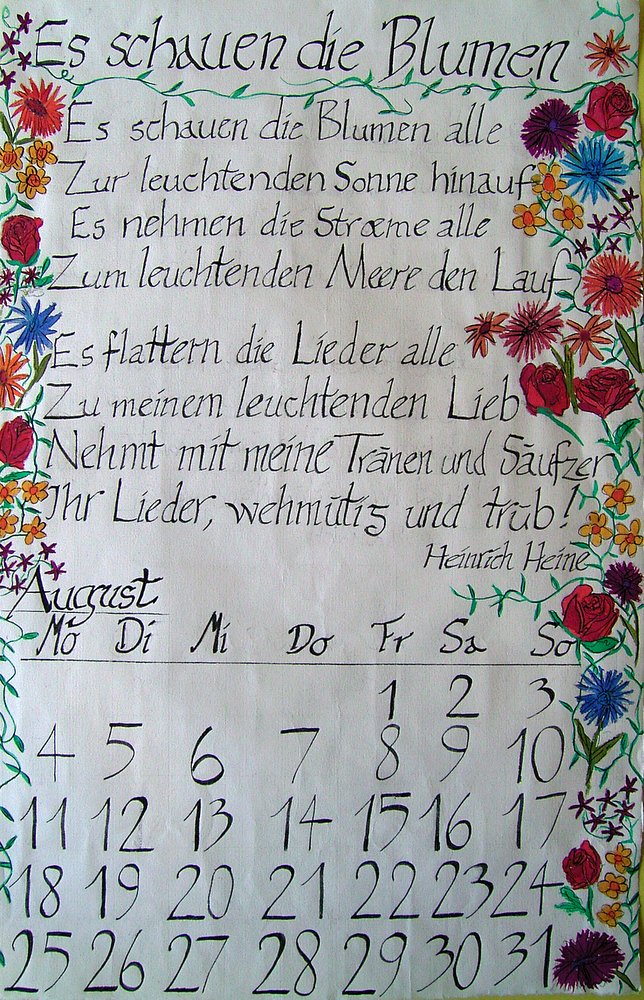 Es schauen die Blumen
Es schauen die Blumen alle
Zur leuchtenden Sonne hinauf
Es nehmen die Stroeme alle
Zum leuchtenden Meere den Lauf
Es flattern die Lieder alle
Zu meinem leuchtenden Lieb
Nehmt mit meine Tränen und Säufzer
Ihr Lieder, wehmütig und trüb!
Heinrich Heine
August
Mo Di Mi Do Fr Sa So
1 2 3
4 5 6 7 8 9 10
11 12 13 14 15 16 17
18 19 20 21 22 23 24
25 26 27 28 29 30 31